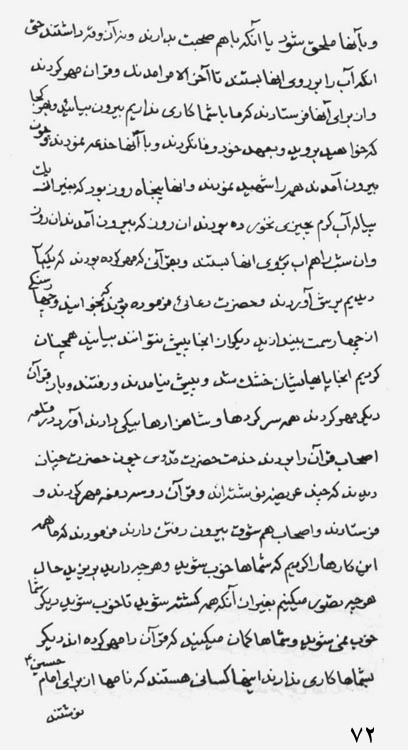 و با آنها ملحق شود با آنکه با هم صحبت بدارند و نه آن وفر داشتند حتی
انکه آب را بر روی انها بستند تا آخر الامر امدند و قران مهر کردند
و از برای آنها فرستادند که ما با شما کاری نداریم بیرون بیائید و بهر کجا
که خواهید بروید و بعهد خود وفا نکردند و با آنها خدعه نمودند چون
بیرون آمدند همه را شهید نمودند و انها پنجاه روز بود که بغیر از یک
پیاله آب گرم چیزی نخورده بودند ان روز که بیرون آمدند ان روز
و ان شب را هم اب بر روی انها بستند و بقرآنی که مهر کرده بودند که یکی
دیدیم پرشی آوردند و حضرت دعائی فرموده بودند که بخوانید و چهار سنگ
از چهار سمت بیندازید دیگر ان انجا پیش نتوانند بیایند همچنان
کردیم انجا پاهایشان خشک شد و پیش نیامدند و رفتند و باز قرآن
دیگر مهر کردند همه سرکردها و شاهزادها بیکی دارند آورد در قلعه
اصحاب قرآن را بردند خدمت حضرت قدوس چون حضرت چنان
دیدند که چند عریضه نوشته اند و قرآن دو سه دفعه مهر کردند و
فرستادند و اصحاب هم شوق بیرون رفتن دارند فرمودند که ما همه
این کارها را کردیم که شماها خوب شوید و هرچه دارید بریزید حال
هرچه تصور میکنیم بغیر از آنکه همه کشته شوید تا خوب شوید دیگر شما
خوب نمی شوید و شماها گمان میکنید که قرآن را مهر کرده اند دیگر
بشماها کاری ندارند اینها کسانی هستند که نامها از برای امام حسین ع
نوشتند
۷۲